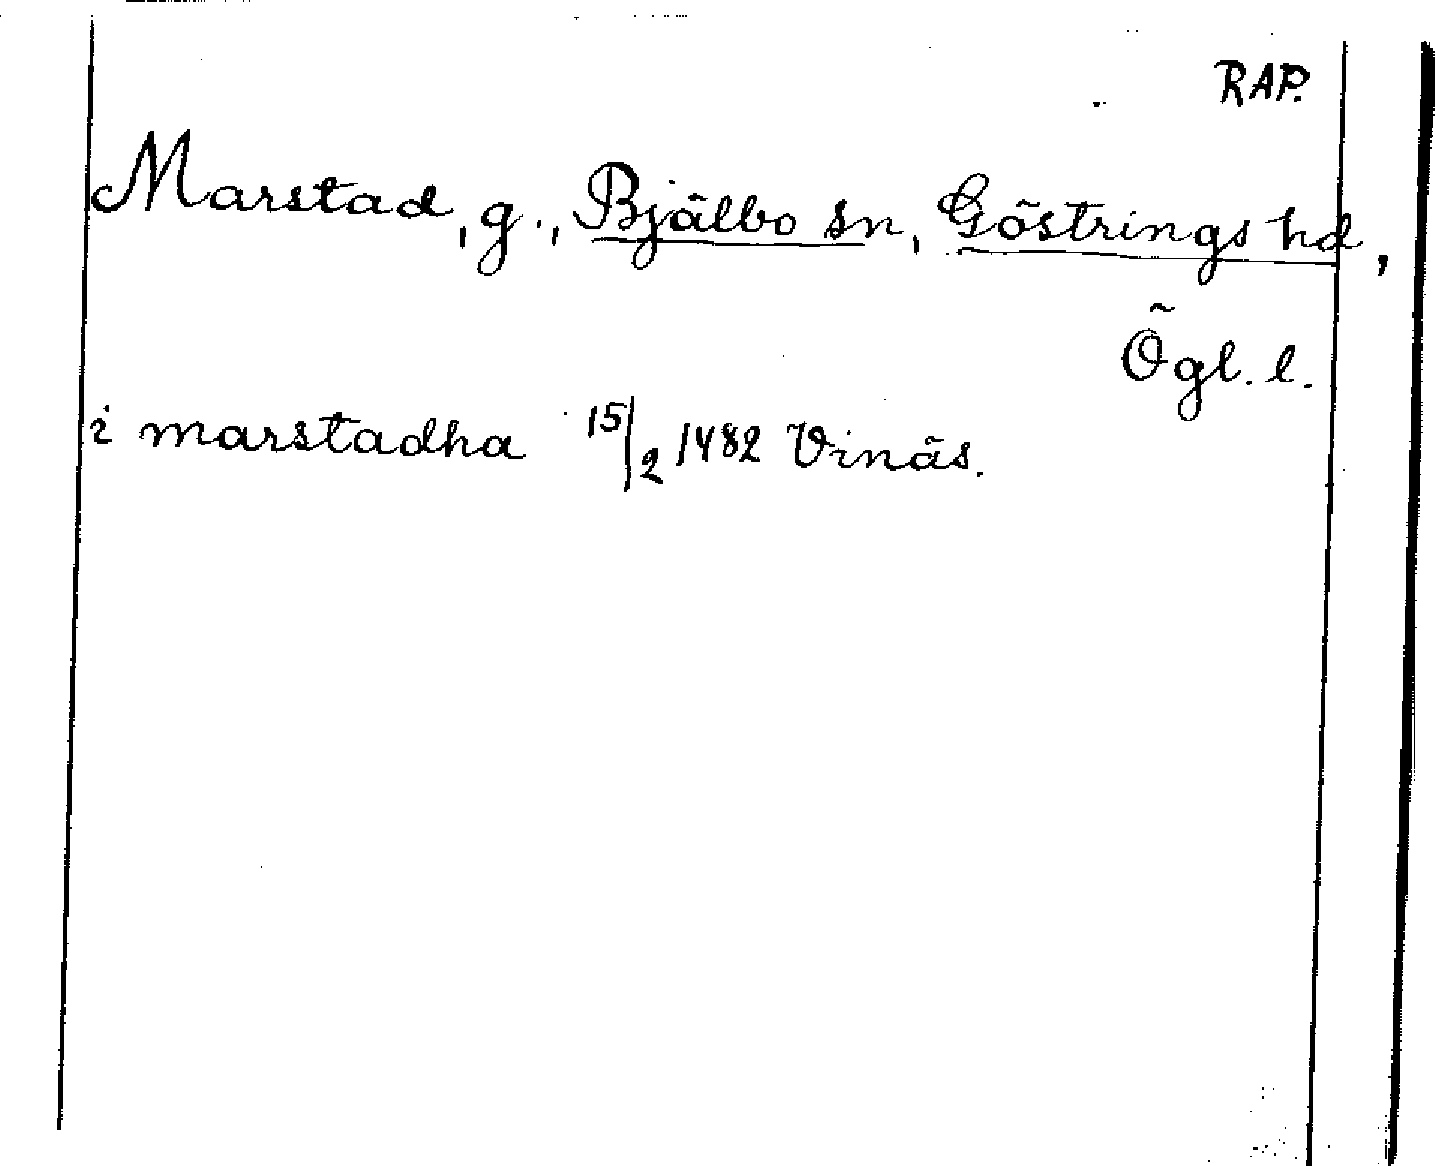 RAP.
Marstad, g., Bjälbo sn, Göstrings hd,
Ögl. l.
i marstadha 15/2 1482 Vinäs.